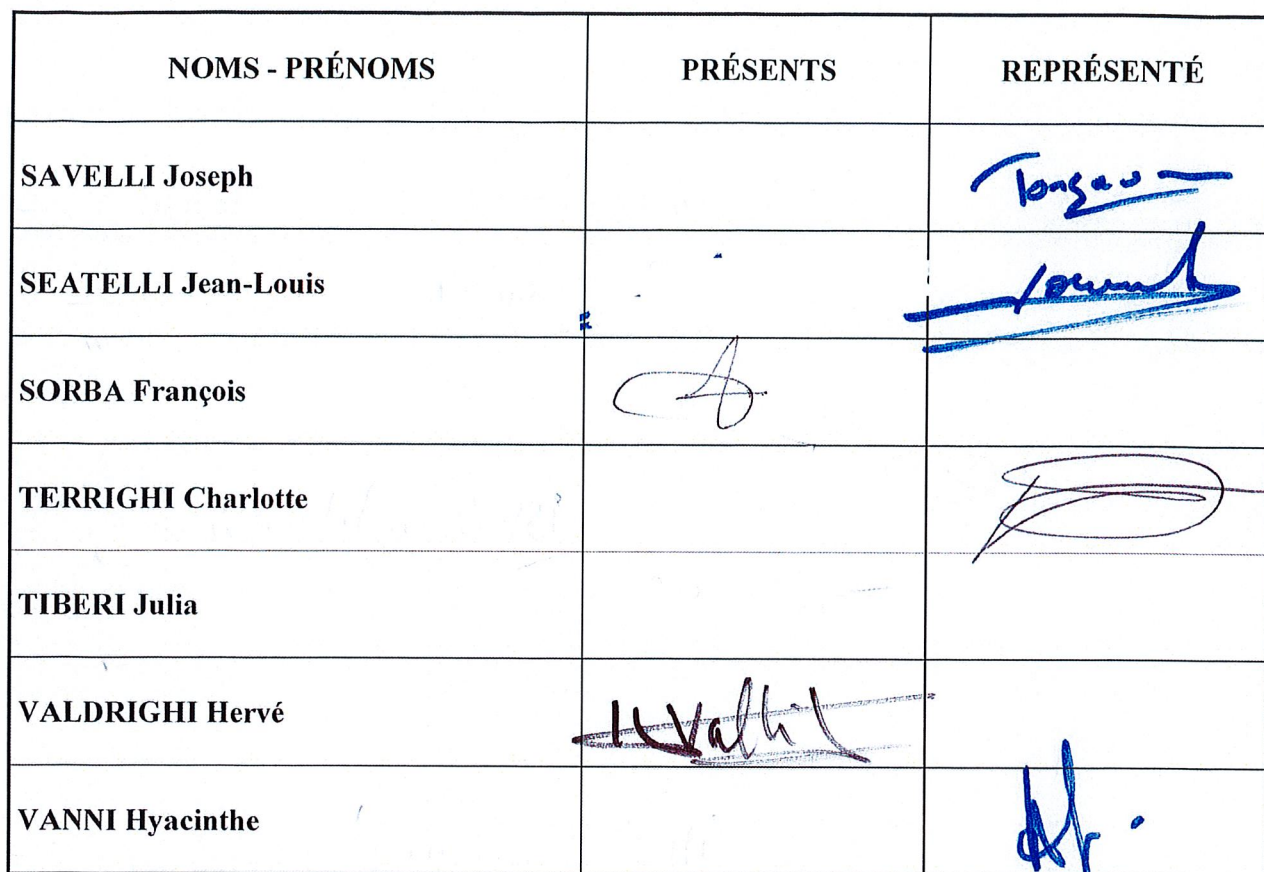 NOMS - PRÉNOMS PRÉSENTS REPRÉSENTÉ
SAVELLI Joseph
SEATELLI Jean-Louis
SORBA François
TERRIGHI Charlotte
TIBERI Julia
VALDRIGHI Hervé
VANNI Hyacinthe